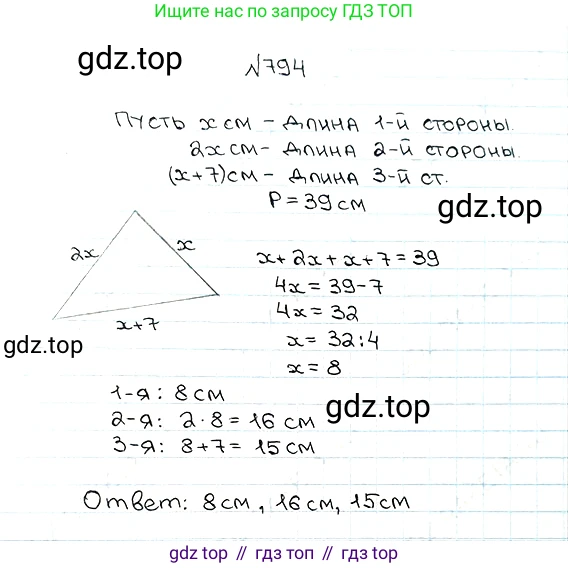 Ищите нас по запросу ГДЗ ТОП
gdz.top
№794
Пусть x см – длина 1-й стороны.
2x см – длина 2-й стороны.
(x+7) см – длина 3-й ст.
P = 39 см
gdz.top
2x
x
x+7
x + 2x + x + 7 = 39
4x = 39-7
4x = 32
x = 32:4
x = 8
gdz.top
1-я: 8 см
2-я: 2·8 = 16 см
3-я: 8+7 = 15 см
gdz.top
Ответ: 8 см, 16 см, 15 см
gdz top // гдз топ // gdz.top